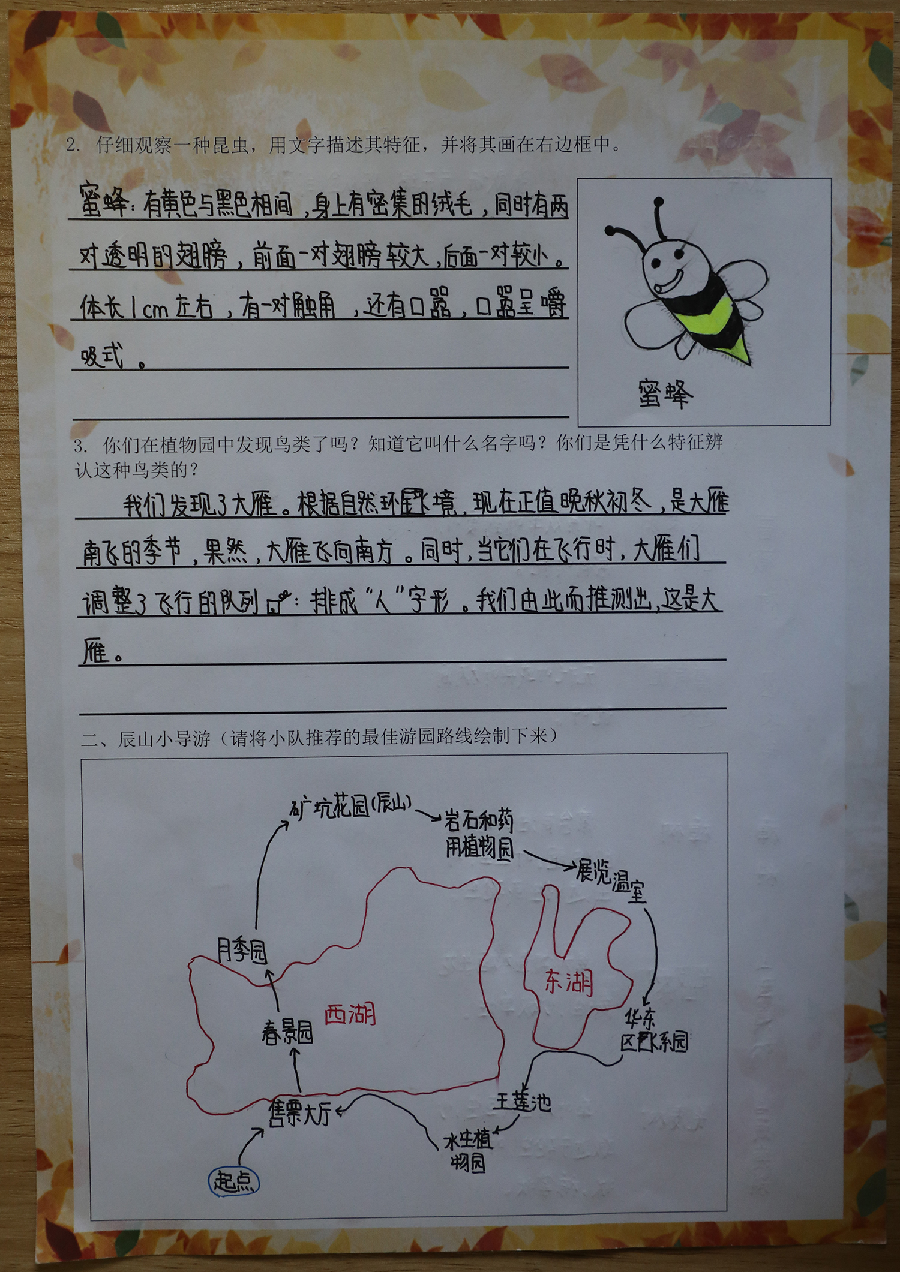 2. 仔细观察一种昆虫，用文字描述其特征，并将其画在右边框中。
蜜蜂：有黄色与黑色相间，身上有密集的绒毛，同时有两
对透明的翅膀，前面一对翅膀较大，后面一对较小。
体长1cm左右，有一对触角，还有口器，口器呈嚼
吸式。
蜜蜂
3. 你们在植物园中发现鸟类了吗？知道它叫什么名字吗？你们是凭什么特征辨
认这种鸟类的？
我们发现了大雁。根据自然环境，现在正值晚秋初冬，是大雁
南飞的季节，果然，大雁飞向南方。同时，当它们在飞行时，大雁们
调整了飞行的队列：排成“人”字形。我们由此而推测出，这是大
雁。
二、辰山小导游（请将小队推荐的最佳游园路线绘制下来）
矿坑花园（辰山）
岩石和药
用植物园
展览温室
月季园
西湖
东湖
春景园
华东
区系园
售票大厅
王莲池
水生植
物园
起点